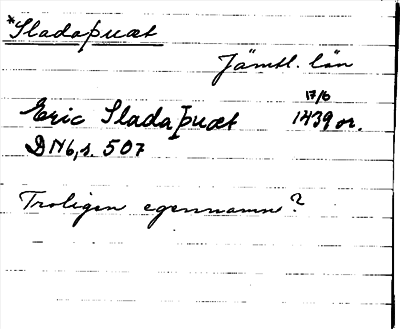 *Sladaþuæt
Jämtl. län
17/6
Eric Sladaþuæt 1439 or.
DN6, s. 507
Troligen egennamn?